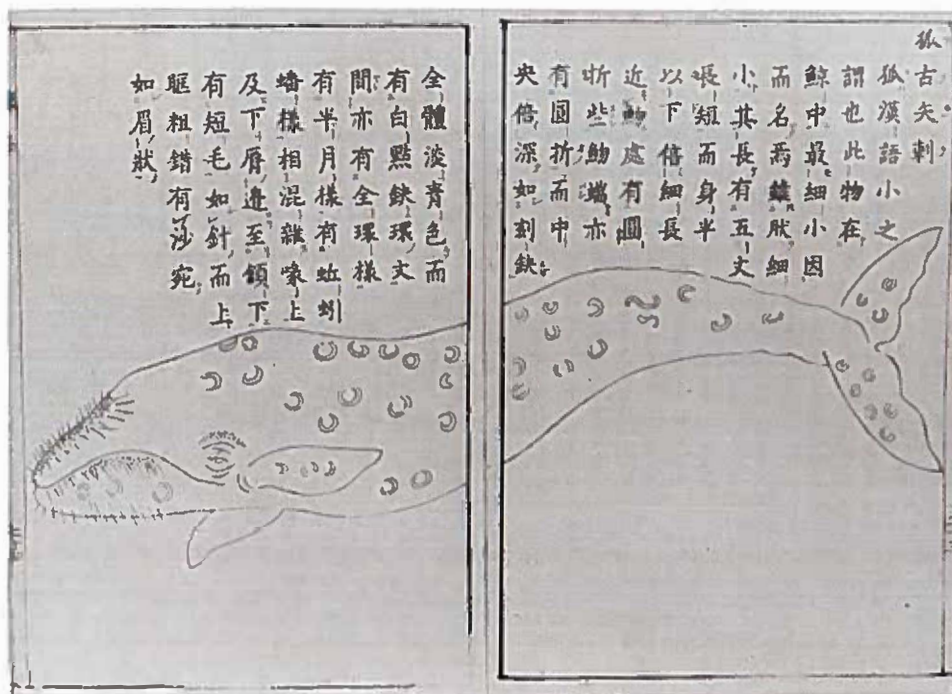 狐
古夫刺
狐漢語小之
謂也此物在
鯨中最細小因
而名焉雖肰細
小其長有五丈
長短而身半
以下倍細長
近處有圓
折些端亦
有圓折而中
央倍深如刻缺
全體淡青色而
有白點缺環文
間亦有全環樣
有半月樣有蚯蚓
蟠樣相混雜喙上
及下唇邊至頷下
有短毛如針而上
粗錯有莎宛
如眉狀